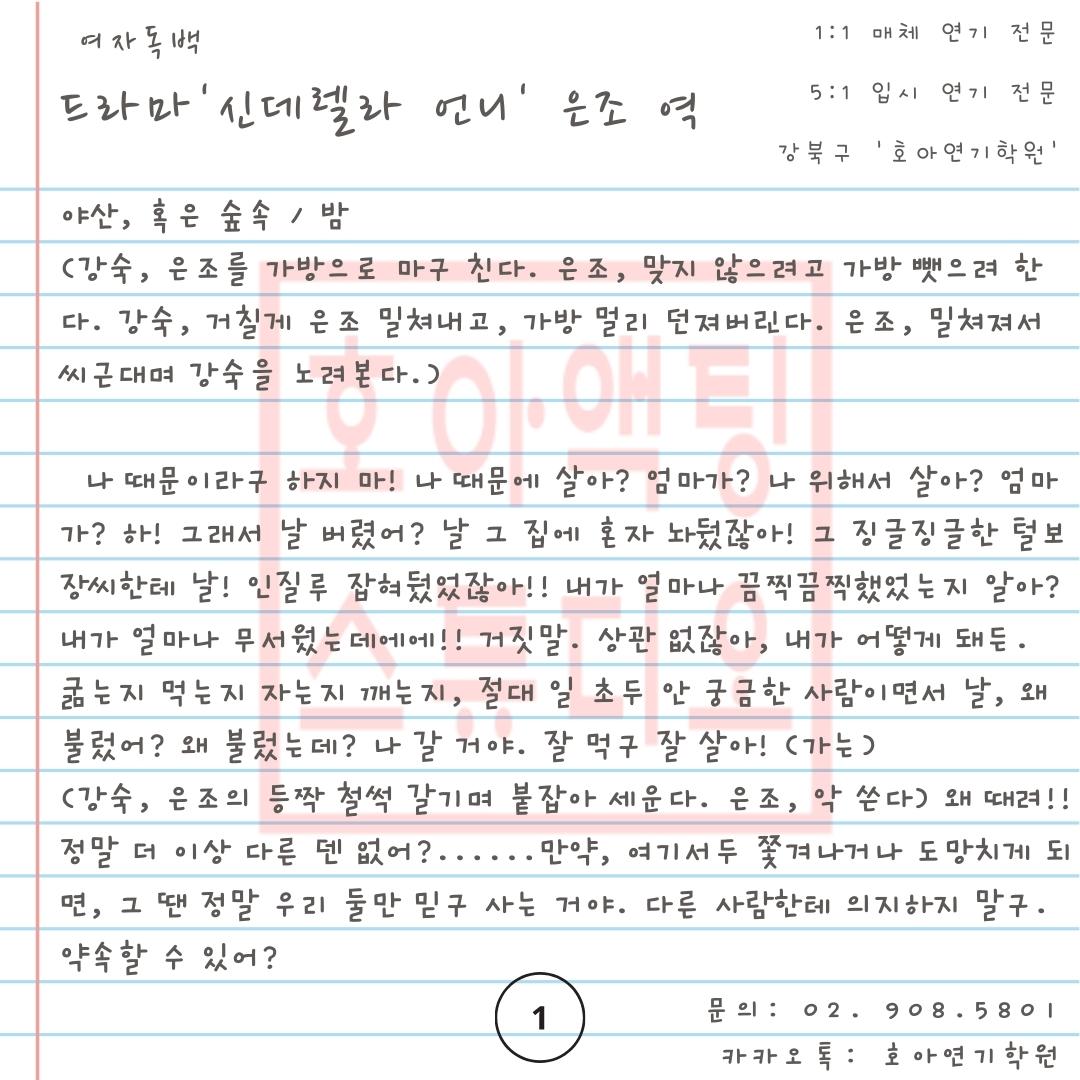 여자독백
1:1 매체 연기 전문
드라마'신데렐라 언니' 은조 역
5:1 입시 연기 전문
강북구 '호아연기학원'
야산, 혹은 숲속 / 밤
(강숙, 은조를 가방으로 마구 친다. 은조, 맞지 않으려고 가방 뺏으려 한
다. 강숙, 거칠게 은조 밀쳐내고, 가방 멀리 던져버린다. 은조, 밀쳐져서
씨근대며 강숙을 노려본다.)
나 때문이라구 하지 마! 나 때문에 살아? 엄마가? 나 위해서 살아? 엄마
가? 하! 그래서 날 버렸어? 날 그 집에 혼자 놔뒀잖아! 그 징글징글한 털보
장씨한테 날! 인질루 잡혀뒀었잖아!! 내가 얼마나 끔찍끔찍했었는지 알아?
내가 얼마나 무서웠는데에에!! 거짓말. 상관 없잖아, 내가 어떻게 돼든.
굶는지 먹는지 자는지 깨는지, 절대 일 초두 안 궁금한 사람이면서 날, 왜
불렀어? 왜 불렀는데? 나 갈 거야. 잘 먹구 잘 살아! (가는)
(강숙, 은조의 등짝 철썩 갈기며 붙잡아 세운다. 은조, 악 쓴다) 왜 때려!!
정말 더 이상 다른 덴 없어?......만약, 여기서두 쫓겨나거나 도망치게 되
면, 그 땐 정말 우리 둘만 믿구 사는 거야. 다른 사람한테 의지하지 말구.
약속할 수 있어?
호아액팅
스튜디오
1
문의: 02. 908.5801
카카오톡: 호아연기학원